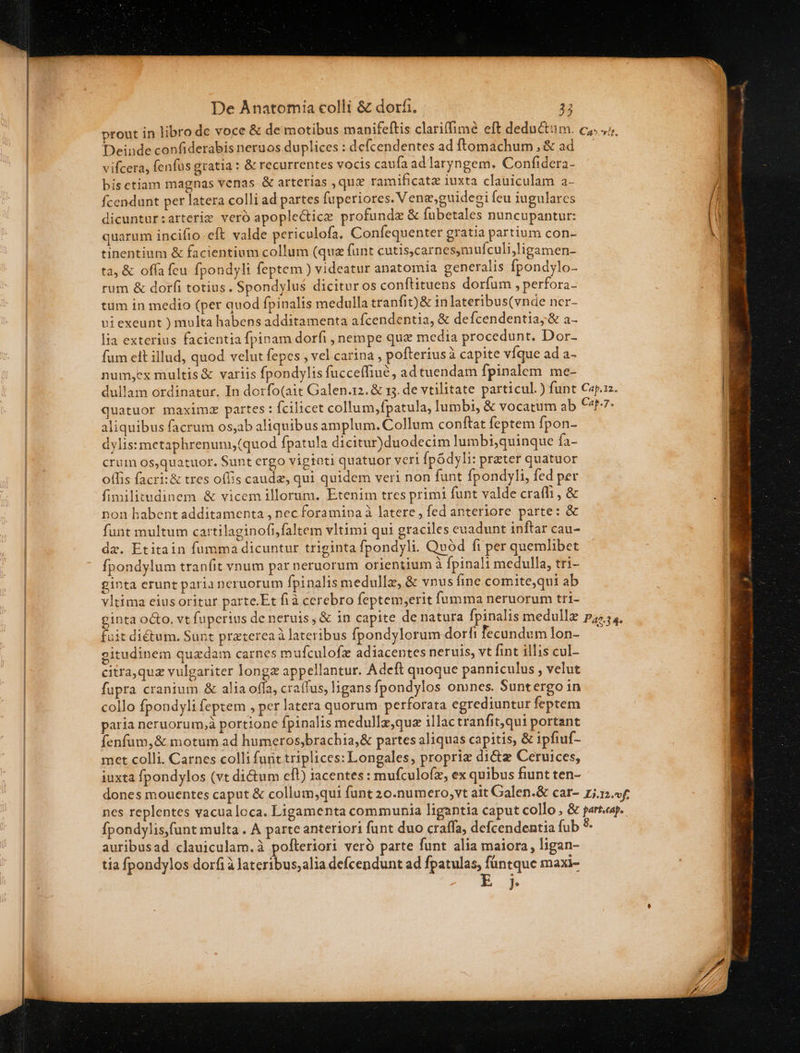 De Anatomia colli & dorſi. 33
prout in libro de voce & de motibus manifeſtis clariſſimè eſt deductum. Cap. vlt.
Deinde conſiderabis neruos duplices : deſcendentes ad ſtomachum , & ad
viſcera, ſenſus gratia : & recurrentes vocis cauſa ad laryngem. Conſidera-
bis etiam magnas venas & arterias , quæ ramificatæ iuxta clauiculam a-
ſcendunt per latera colli ad partes ſuperiores. Venæ,guidegi ſeu iugulares
dicuntur: arteriæ verò apoplecticæ profundæ & ſubetales nuncupantur:
quarum inciſio eſt valde periculoſa. Conſequenter gratia partium con-
tinentium & facientium collum (quæ ſunt cutis,carnes,muſculi,ligamen-
ta, & oſſa ſeu ſpondyli ſeptem ) videatur anatomia generalis ſpondylo-
rum & dorſi totius. Spondylus dicitur os conſtituens dorſum , perfora-
tum in medio (per quod ſpinalis medulla tranſit)& in lateribus(vnde ner-
ui exeunt ) multa habens additamenta aſcendentia, & deſcendentia, & a-
lia exterius facientia ſpinam dorſi , nempe quæ media procedunt. Dor-
ſum eſt illud, quod velut ſepes , vel carina , poſterius à capite vſque ad a-
num,ex multis & variis ſpondylis ſucceſſiuè, ad tuendam ſpinalem me-
dullam ordinatur. In dorſo(ait Galen.12. & 13. de vtilitate particul. ) ſunt Cap.12.
quatuor maximæ partes : ſcilicet collum,ſpatula, lumbi, & vocatum ab Cap.7.
aliquibus ſacrum os,ab aliquibus amplum. Collum conſtat ſeptem ſpon-
dylis:metaphrenum,(quod ſpatula dicitur)duodecim lumbi,quinque ſa-
crum os,quatuor. Sunt ergo viginti quatuor veri ſpòdyli: præter quatuor
oſſis ſacri: & tres oſſis caudæ, qui quidem veri non ſunt ſpondyli, ſed per
ſimilitudinem & vicem illorum. Etenim tres primi ſunt valde craſſi , &
non habent additamenta , nec foramina à latere , ſed anteriore parte: &
ſunt multum cartilaginoſi,ſaltem vltimi qui graciles euadunt inſtar cau-
dæ. Et ita in ſumma dicuntur triginta ſpondyli. Quòd ſi per quemlibet
ſpondylum tranſit vnum par neruorum orientium à ſpinali medulla, tri-
ginta erunt paria neruorum ſpinalis medullæ, & vnus ſine comite,qui ab
vltima eius oritur parte.Et ſi à cerebro ſeptem,erit ſumma neruorum tri-
ginta octo. vt ſuperius de neruis , & in capite de natura ſpinalis medullæ Pag.34.
fuit dictum. Sunt præterea à lateribus ſpondylorum dorſi ſecundum lon-
gitudinem quædam carnes muſculoſæ adiacentes neruis, vt ſint illis cul-
citra,quæ vulgariter longæ appellantur. Adeſt quoque panniculus , velut
ſupra cranium & alia oſſa, craſſus, ligans ſpondylos omnes. Sunt ergo in
collo ſpondyli ſeptem , per latera quorum perforata egrediuntur ſeptem
paria neruorum,à portione ſpinalis medullæ,quæ illac tranſit,qui portant
ſenſum,& motum ad humeros,brachia,& partes aliquas capitis, & ipſiuſ-
met colli. Carnes colli ſunt triplices: Longales, propriæ dictæ Ceruices,
iuxta ſpondylos (vt dictum eſt) iacentes : muſculoſæ, ex quibus fiunt ten-
dones mouentes caput & collum,qui ſunt 20.numero,vt ait Galen.& car- Li.12.vſ.
nes replentes vacua loca. Ligamenta communia ligantia caput collo , & part.cap.
ſpondylis,ſunt multa . A parte anteriori ſunt duo craſſa, deſcendentia ſub 8.
auribus ad clauiculam. à poſteriori verò parte ſunt alia maiora , ligan-
tia ſpondylos dorſi à lateribus,alia deſcendunt ad ſpatulas, ſúntque maxi-
E j.